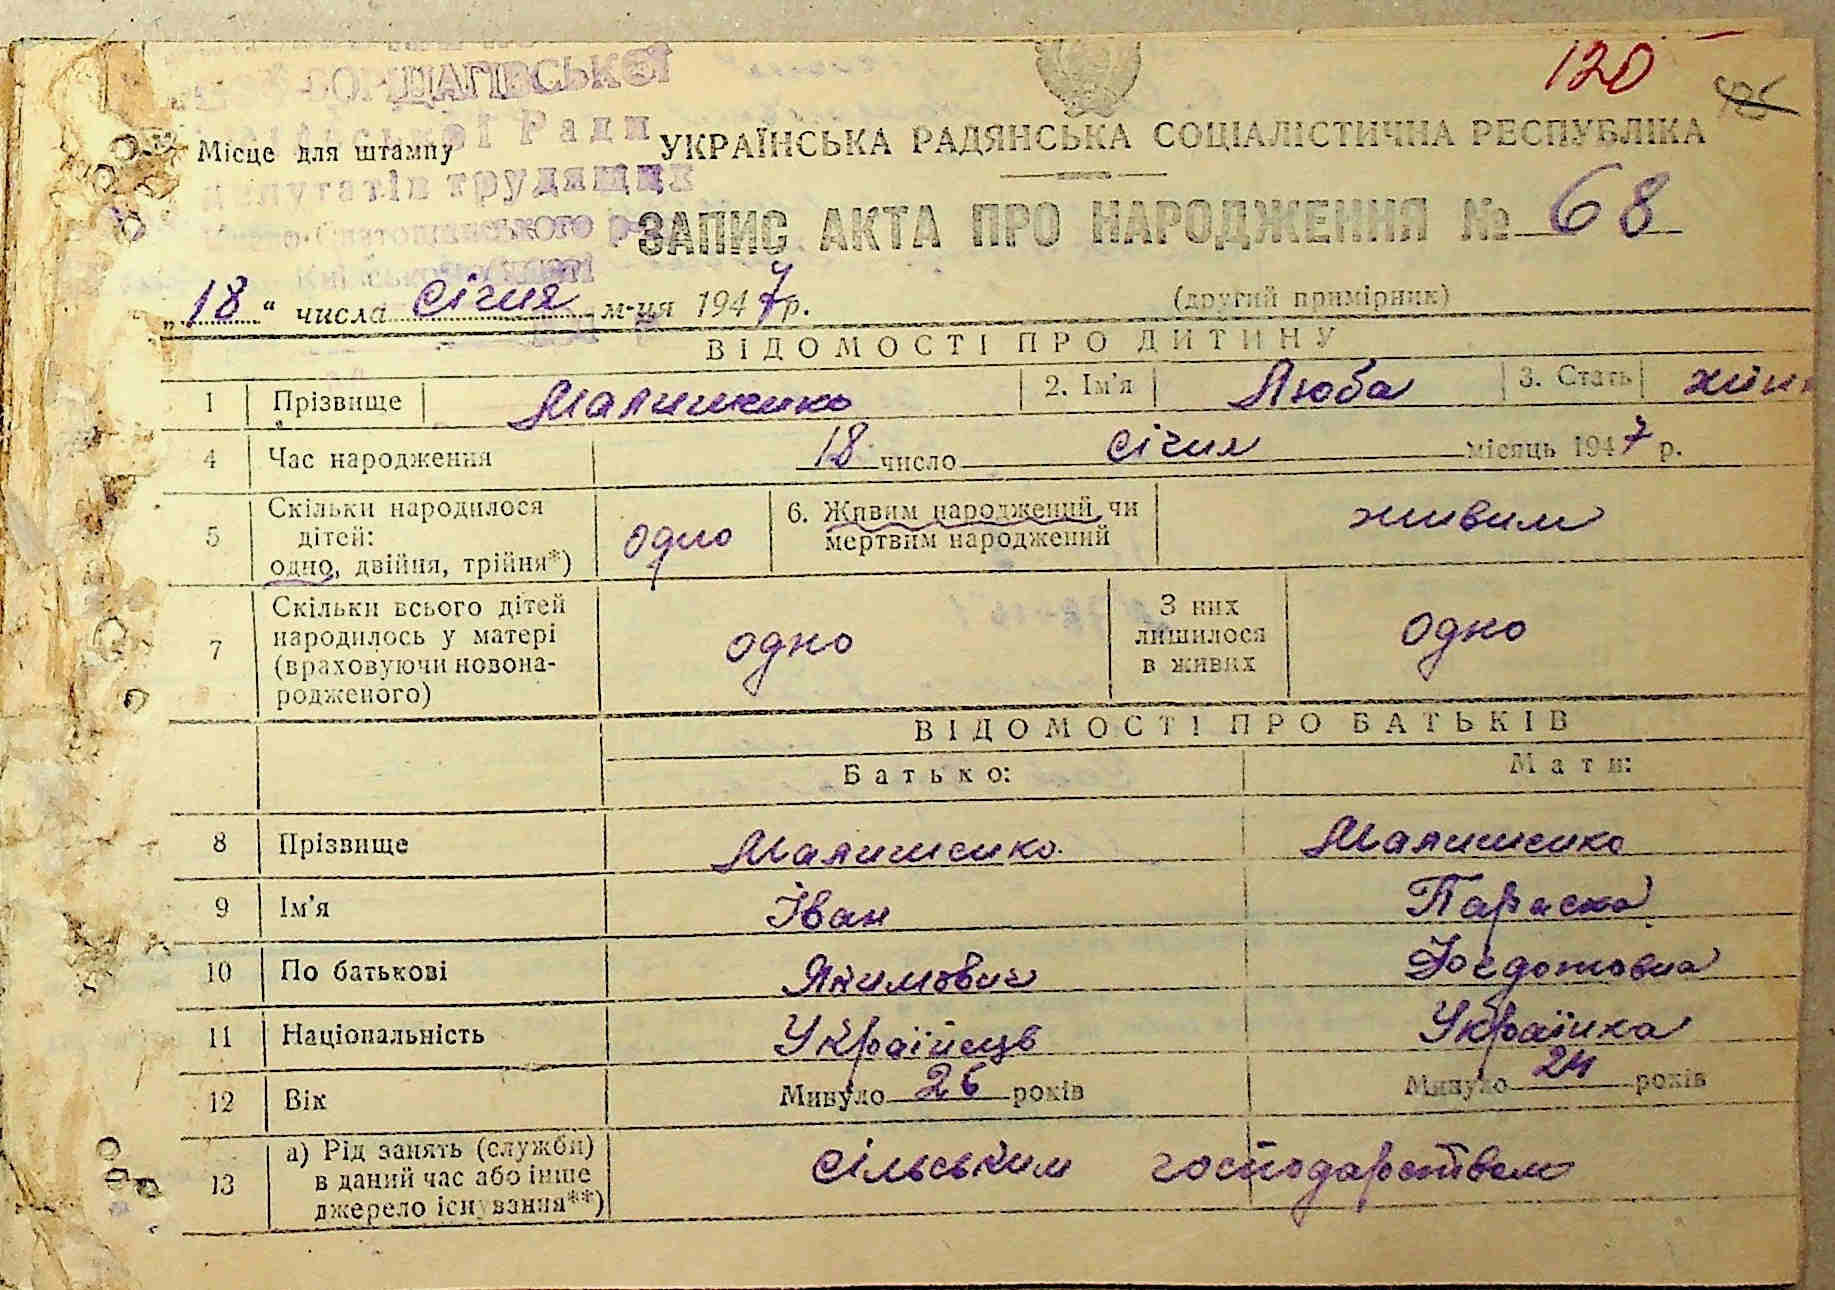 120
БОРЩАГІВСЬКОЇ
Місце для штампу
Ради
УКРАЇНСЬКА РАДЯНСЬКА СОЦІАЛІСТИЧНА РЕСПУБЛІКА
депутатів трудящих
Києво-Святошинського р-
ЗАПИС АКТА ПРО НАРОДЖЕННЯ № 68
"18" числа січня м-ця 1947 р.
(другий примірник)
ВІДОМОСТІ ПРО ДИТИНУ
1 Прізвище Малишенко 2. Ім'я Люба 3. Стать жін
4 Час народження 18 число січня місяць 1947 р.
5 Скільки народилося дітей: одно, двійня, трійня*) одно 6. Живим народжений чи мертвим народжений живим
7 Скільки всього дітей народилось у матері (враховуючи новонародженого) одно З них лишилося в живих одно
ВІДОМОСТІ ПРО БАТЬКІВ
Батько: Мати:
8 Прізвище Малишенко Малишенко
9 Ім'я Іван Параска
10 По батькові Якимович Федотовна
11 Національність Українець Українка
12 Вік Минуло 26 років Минуло 24 років
13 а) Рід занять (служби) в даний час або інше джерело існування**) сільським господарством